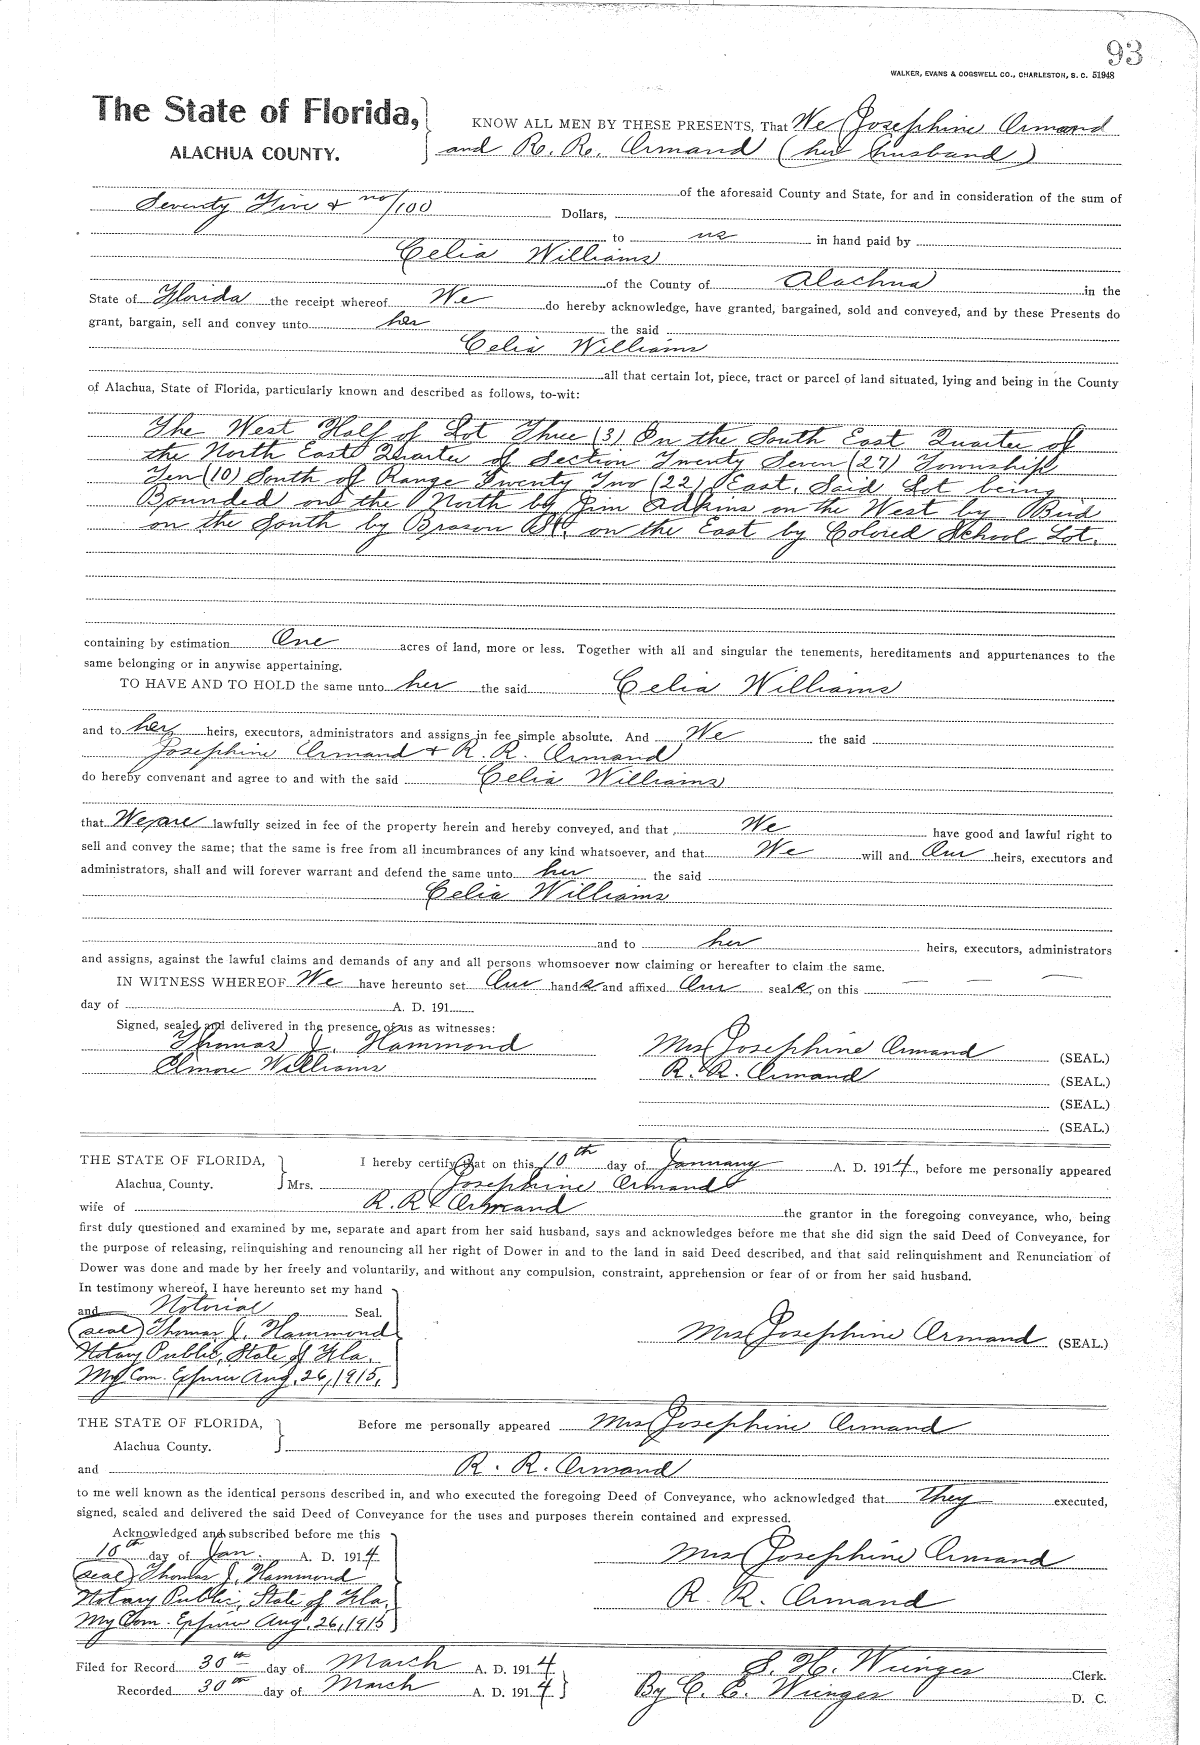 93
WALKER, EVANS & COGSWELL CO., CHARLESTON, S. C. 51948
The State of Florida,
ALACHUA COUNTY.
KNOW ALL MEN BY THESE PRESENTS, That We Josephine Ormand
and R. R. Ormand (her husband)
of the aforesaid County and State, for and in consideration of the sum of
Seventy Five & no/100 Dollars,
to us in hand paid by
Celia Williams
of the County of Alachua in the
State of Florida the receipt whereof We do hereby acknowledge, have granted, bargained, sold and conveyed, and by these Presents do
grant, bargain, sell and convey unto her the said
Celia Williams
all that certain lot, piece, tract or parcel of land situated, lying and being in the County
of Alachua, State of Florida, particularly known and described as follows, to-wit:
The West Half of Lot Three (3) On the South East Quarter of
the North East Quarter of Section Twenty Seven (27) Township
Ten (10) South of Range Twenty Two (22) East. Said Lot being
Bounded on the North by Jim Adkins on the West by Bird
on the South by Brason St. on the East by Colored School Lot.
containing by estimation One acres of land, more or less. Together with all and singular the tenements, hereditaments and appurtenances to the
same belonging or in anywise appertaining.
TO HAVE AND TO HOLD the same unto her the said Celia Williams
and to her heirs, executors, administrators and assigns in fee simple absolute. And We the said
Josephine Ormand & R. R. Ormand
do hereby convenant and agree to and with the said Celia Williams
that We are lawfully seized in fee of the property herein and hereby conveyed, and that We have good and lawful right to
sell and convey the same; that the same is free from all incumbrances of any kind whatsoever, and that We will and Our heirs, executors and
administrators, shall and will forever warrant and defend the same unto her the said
Celia Williams
and to her heirs, executors, administrators
and assigns, against the lawful claims and demands of any and all persons whomsoever now claiming or hereafter to claim the same.
IN WITNESS WHEREOF We have hereunto set Our hands and affixed Our seals, on this — — —
day of A. D. 191
Signed, sealed and delivered in the presence of us as witnesses:
Thomas J. Hammond
Elmore Williams
Mrs Josephine Ormand (SEAL.)
R. R. Ormand (SEAL.)
(SEAL.)
(SEAL.)
THE STATE OF FLORIDA,
Alachua, County.
I hereby certify that on this 10th day of January A. D. 1914, before me personally appeared
Mrs. Josephine Ormand
wife of R. R. Ormand the grantor in the foregoing conveyance, who, being
first duly questioned and examined by me, separate and apart from her said husband, says and acknowledges before me that she did sign the said Deed of Conveyance, for
the purpose of releasing, relinquishing and renouncing all her right of Dower in and to the land in said Deed described, and that said relinquishment and Renunciation of
Dower was done and made by her freely and voluntarily, and without any compulsion, constraint, apprehension or fear of or from her said husband.
In testimony whereof, I have hereunto set my hand
and Notorial Seal.
(seal) Thomas J. Hammond
Notary Public, State of Fla.
My Com. Expires Aug. 26, 1915.
Mrs Josephine Ormand (SEAL.)
THE STATE OF FLORIDA,
Alachua County.
Before me personally appeared Mrs Josephine Ormand
and R. R. Ormand
to me well known as the identical persons described in, and who executed the foregoing Deed of Conveyance, who acknowledged that They executed,
signed, sealed and delivered the said Deed of Conveyance for the uses and purposes therein contained and expressed.
Acknowledged and subscribed before me this
10th day of Jan. A. D. 1914
(seal) Thomas J. Hammond
Notary Public, State of Fla.
My Com. Expires Aug. 26, 1915
Mrs Josephine Ormand
R. R. Ormand
Filed for Record 30th day of March A. D. 1914
Recorded 30th day of March A. D. 1914
S. H. Wienges Clerk.
By C. E. Wienges D. C.